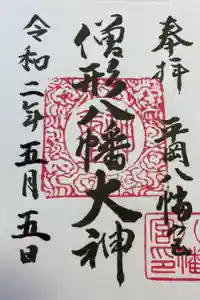 奉拝
平岡八幡宮
僧形八幡大神
令和二年五月五日